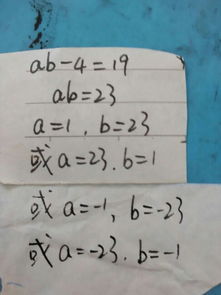 ab-4=19
ab=23
a=1, b=23
或 a=23. b=1
或 a=-1, b=-23
或 a=-23. b=-1